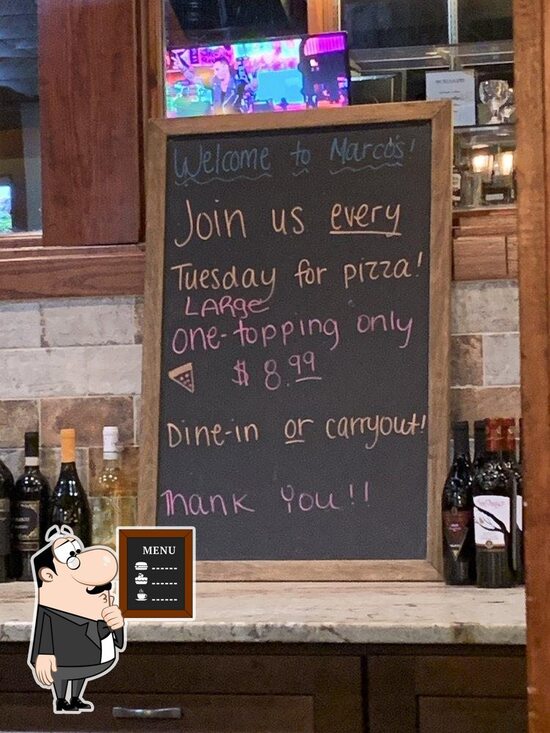 Welcome to Marco's!
Join us every
Tuesday for pizza!
LARGE
one-topping only
$8.99
Dine-in or carryout!
Thank You!!
MENU